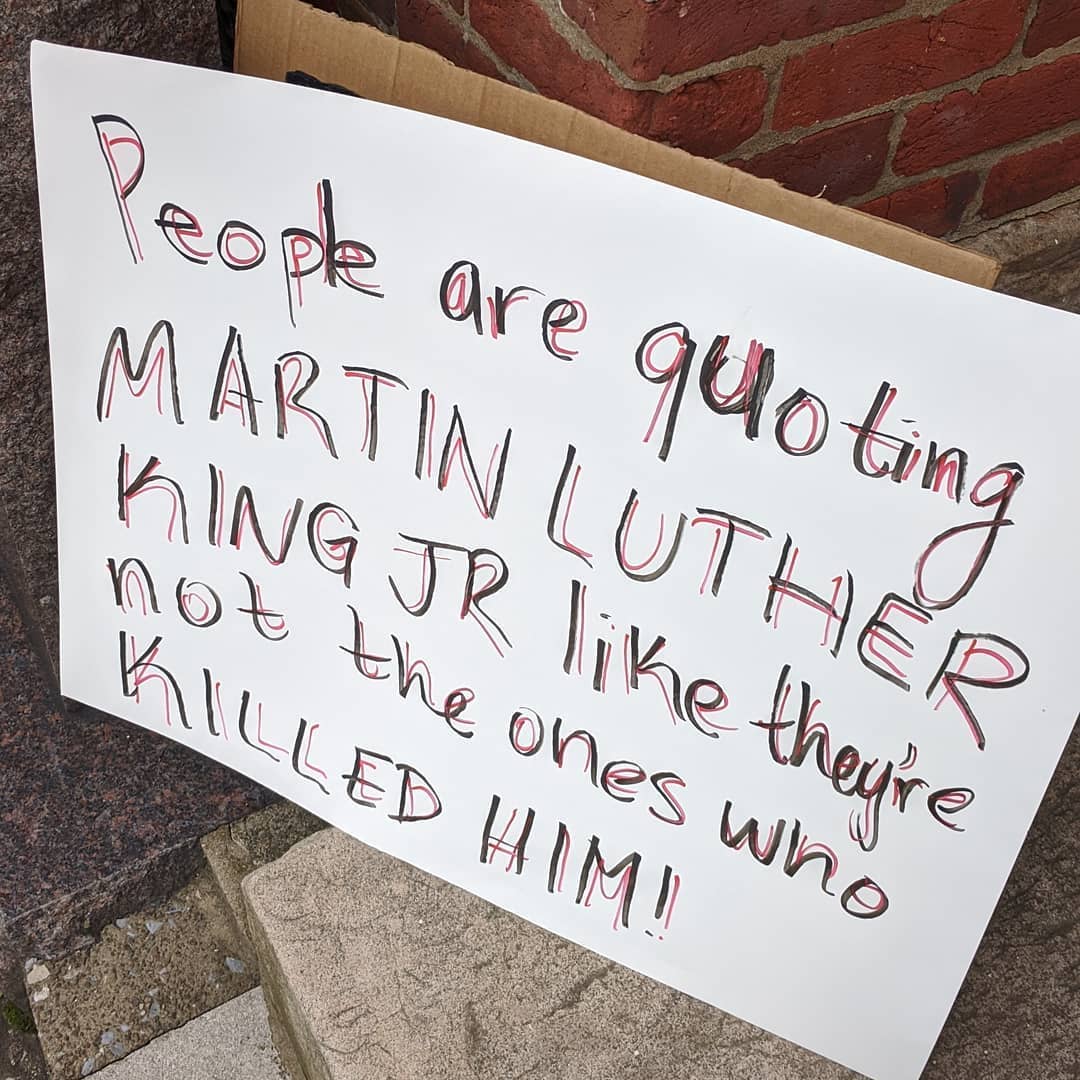 People are quoting
MARTIN LUTHER
KING JR like they're
not the ones who
KILLED HIM!!